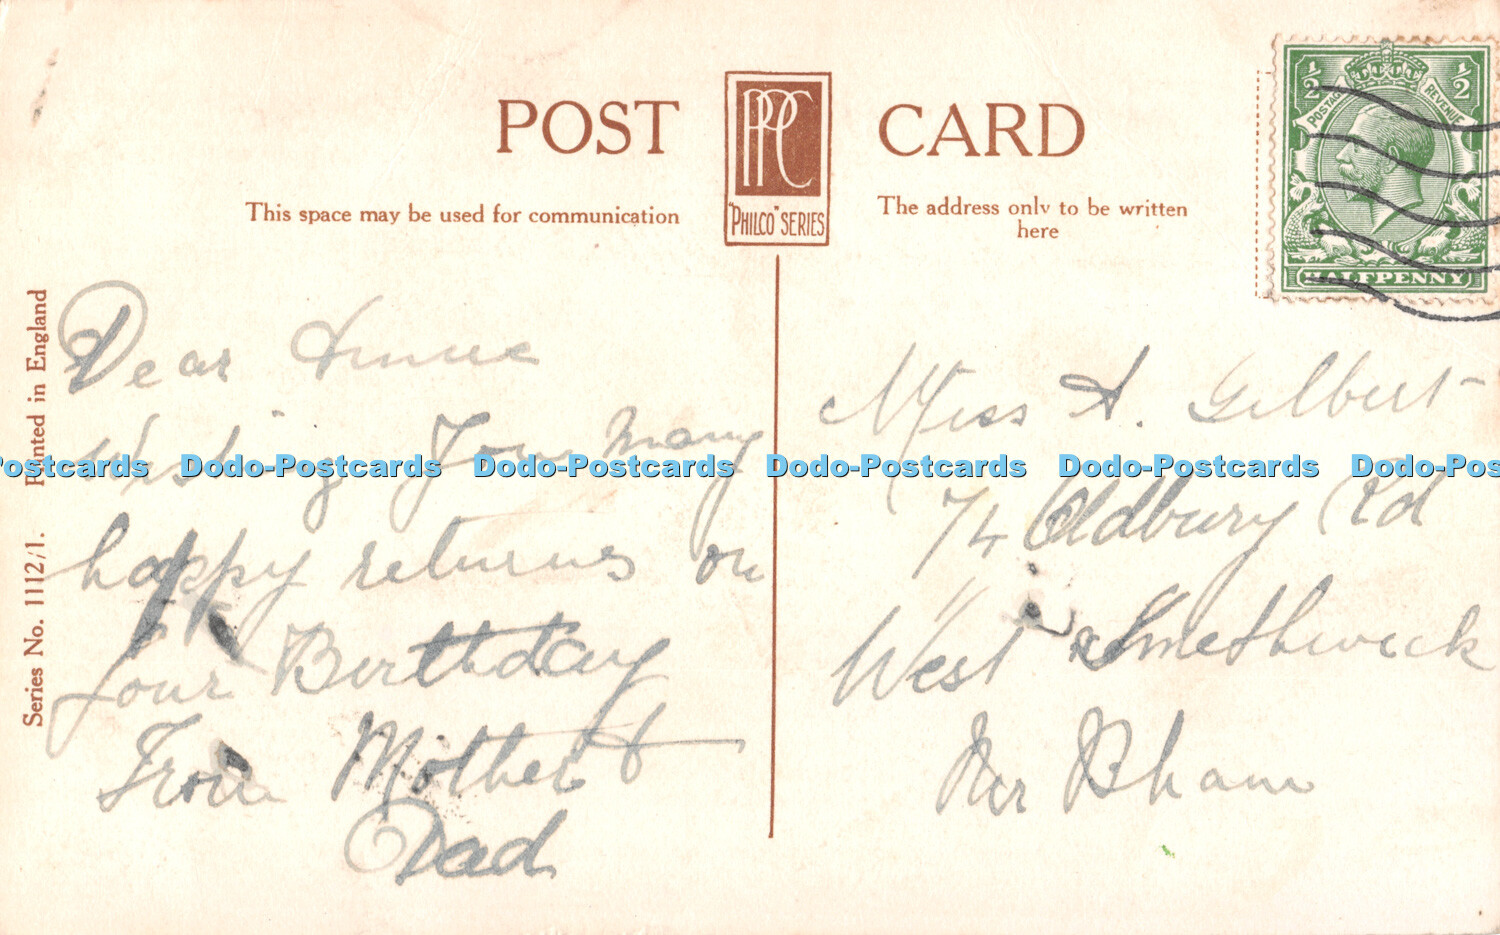 POST CARD
PPC
"PHILCO" SERIES
This space may be used for communication
The address only to be written
here
½ ½
POSTAGE REVENUE
HALFPENNY
Series No. 1112/1. Printed in England
Dear Annie
Wishing Your many
happy returns on
Your Birthday
From Mother &
Dad
Miss A. Gilbert
74 Oldbury Rd
West Smethwick
Nr Bham
Postcards Dodo-Postcards Dodo-Postcards Dodo-Postcards Dodo-Postcards Dodo-Pos